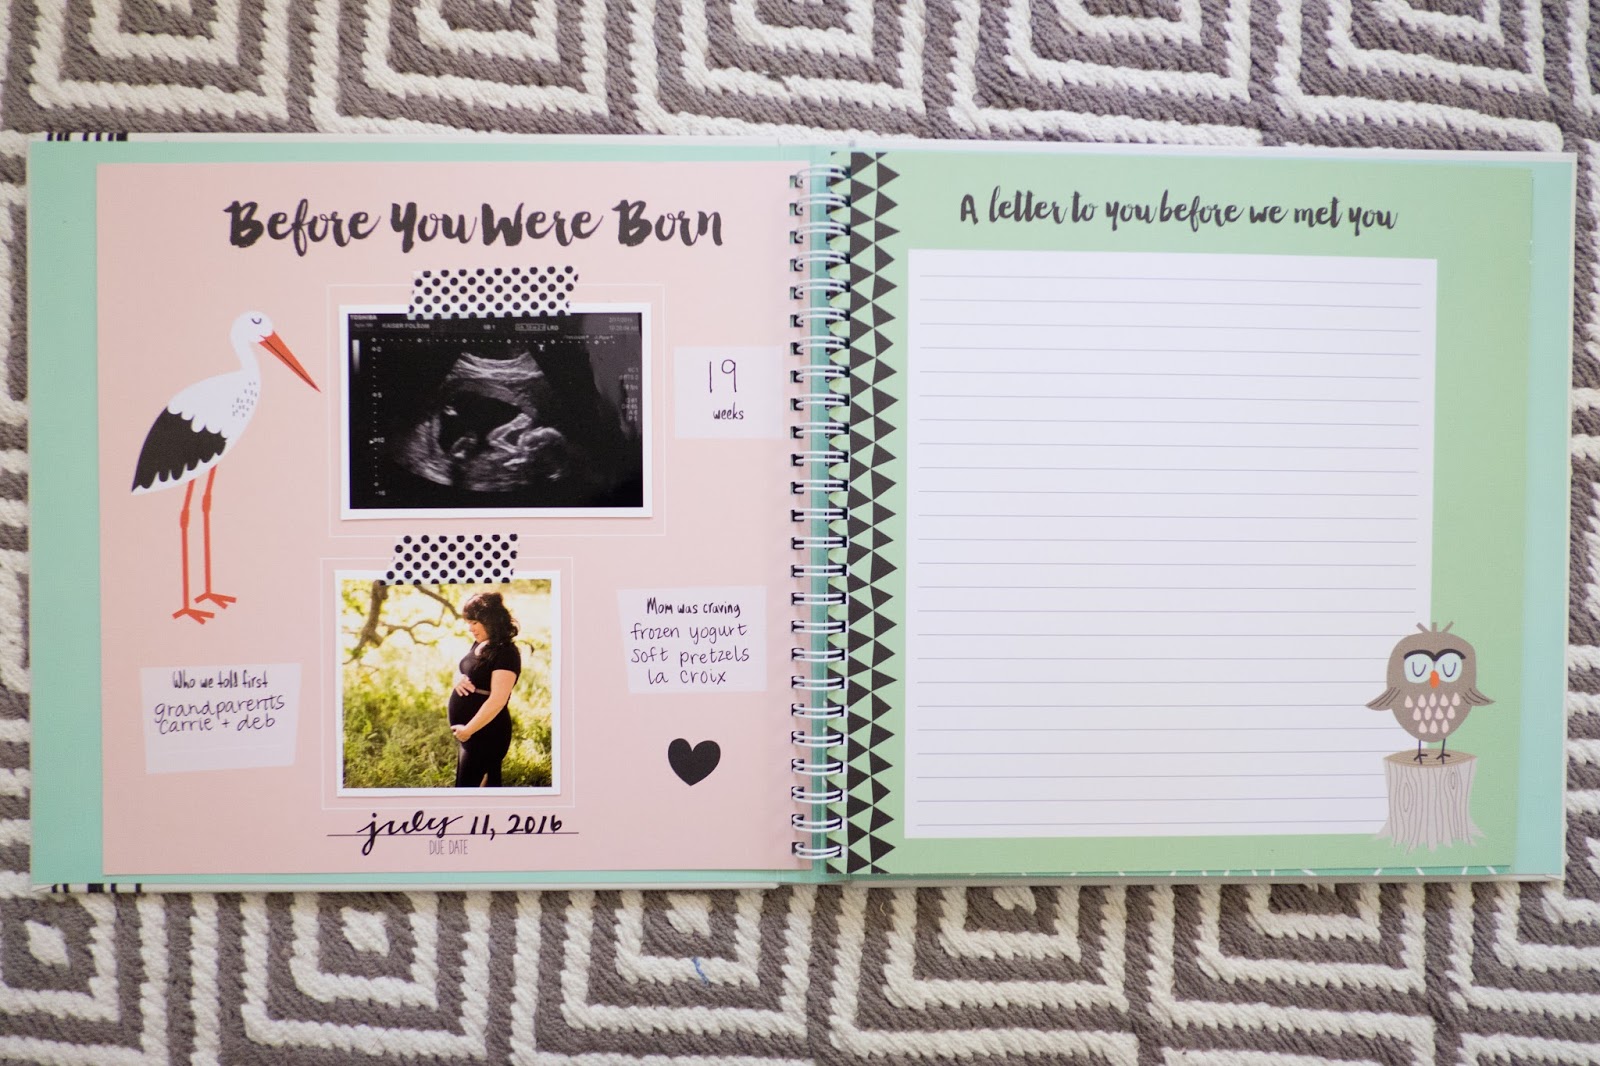 Before You Were Born
TOSHIBA
KAISER FOLSOM
19
weeks
Mom was craving
frozen yogurt
soft pretzels
la croix
Who we told first
grandparents
carrie + deb
july 11, 2016
DUE DATE
A letter to you before we met you